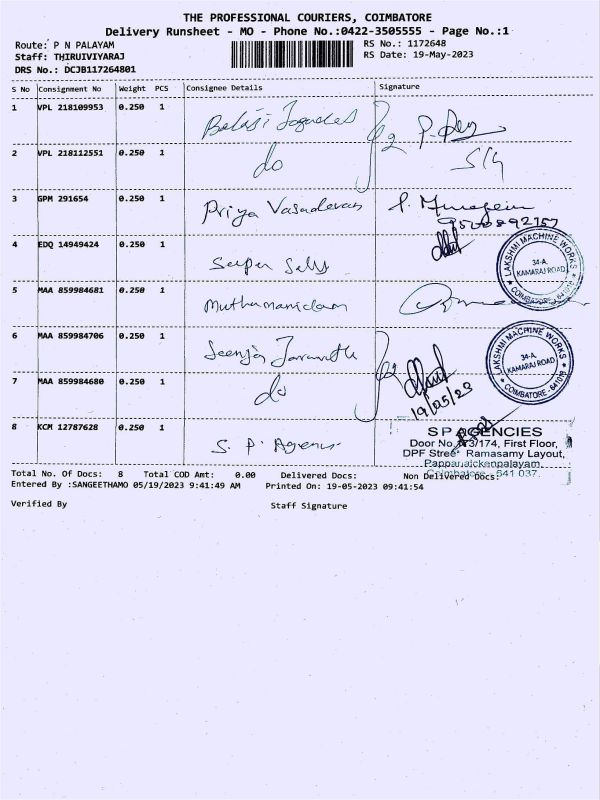 THE PROFESSIONAL COURIERS, COIMBATORE
Delivery Runsheet - MO - Phone No.:0422-3505555 - Page No.:1
Route: P N PALAYAM
Staff: THIRUIVIYARAJ
DRS No.: DCJB117264801
RS No.: 1172648
RS Date: 19-May-2023
S No Consignment No Weight PCS Consignee Details Signature
1 VPL 218109953 0.250 1
2 VPL 218112551 0.250 1 do
3 GPM 291654 0.250 1 Priya Vasudevan
4 EDQ 14949424 0.250 1
LAKSHMI MACHINE WORKS
34-A,
KAMARAJ ROAD
COIMBATORE
5 MAA 859984681 0.250 1
6 MAA 859984706 0.250 1
LAKSHMI MACHINE WORKS
34-A,
KAMARAJ ROAD
COIMBATORE - 641018
7 MAA 859984680 0.250 1 do
19/05/23
8 KCM 12787628 0.250 1 S. P. Agencies
S P AGENCIES
Door No. 173/174, First Floor,
DPF Street Ramasamy Layout,
Pappanaickenpalayam,
Coimbatore - 641 037.
Total No. Of Docs: 8 Total COD Amt: 0.00 Delivered Docs: Non Delivered Docs:
Entered By :SANGEETHAMO 05/19/2023 9:41:49 AM Printed On: 19-05-2023 09:41:54
Verified By Staff Signature